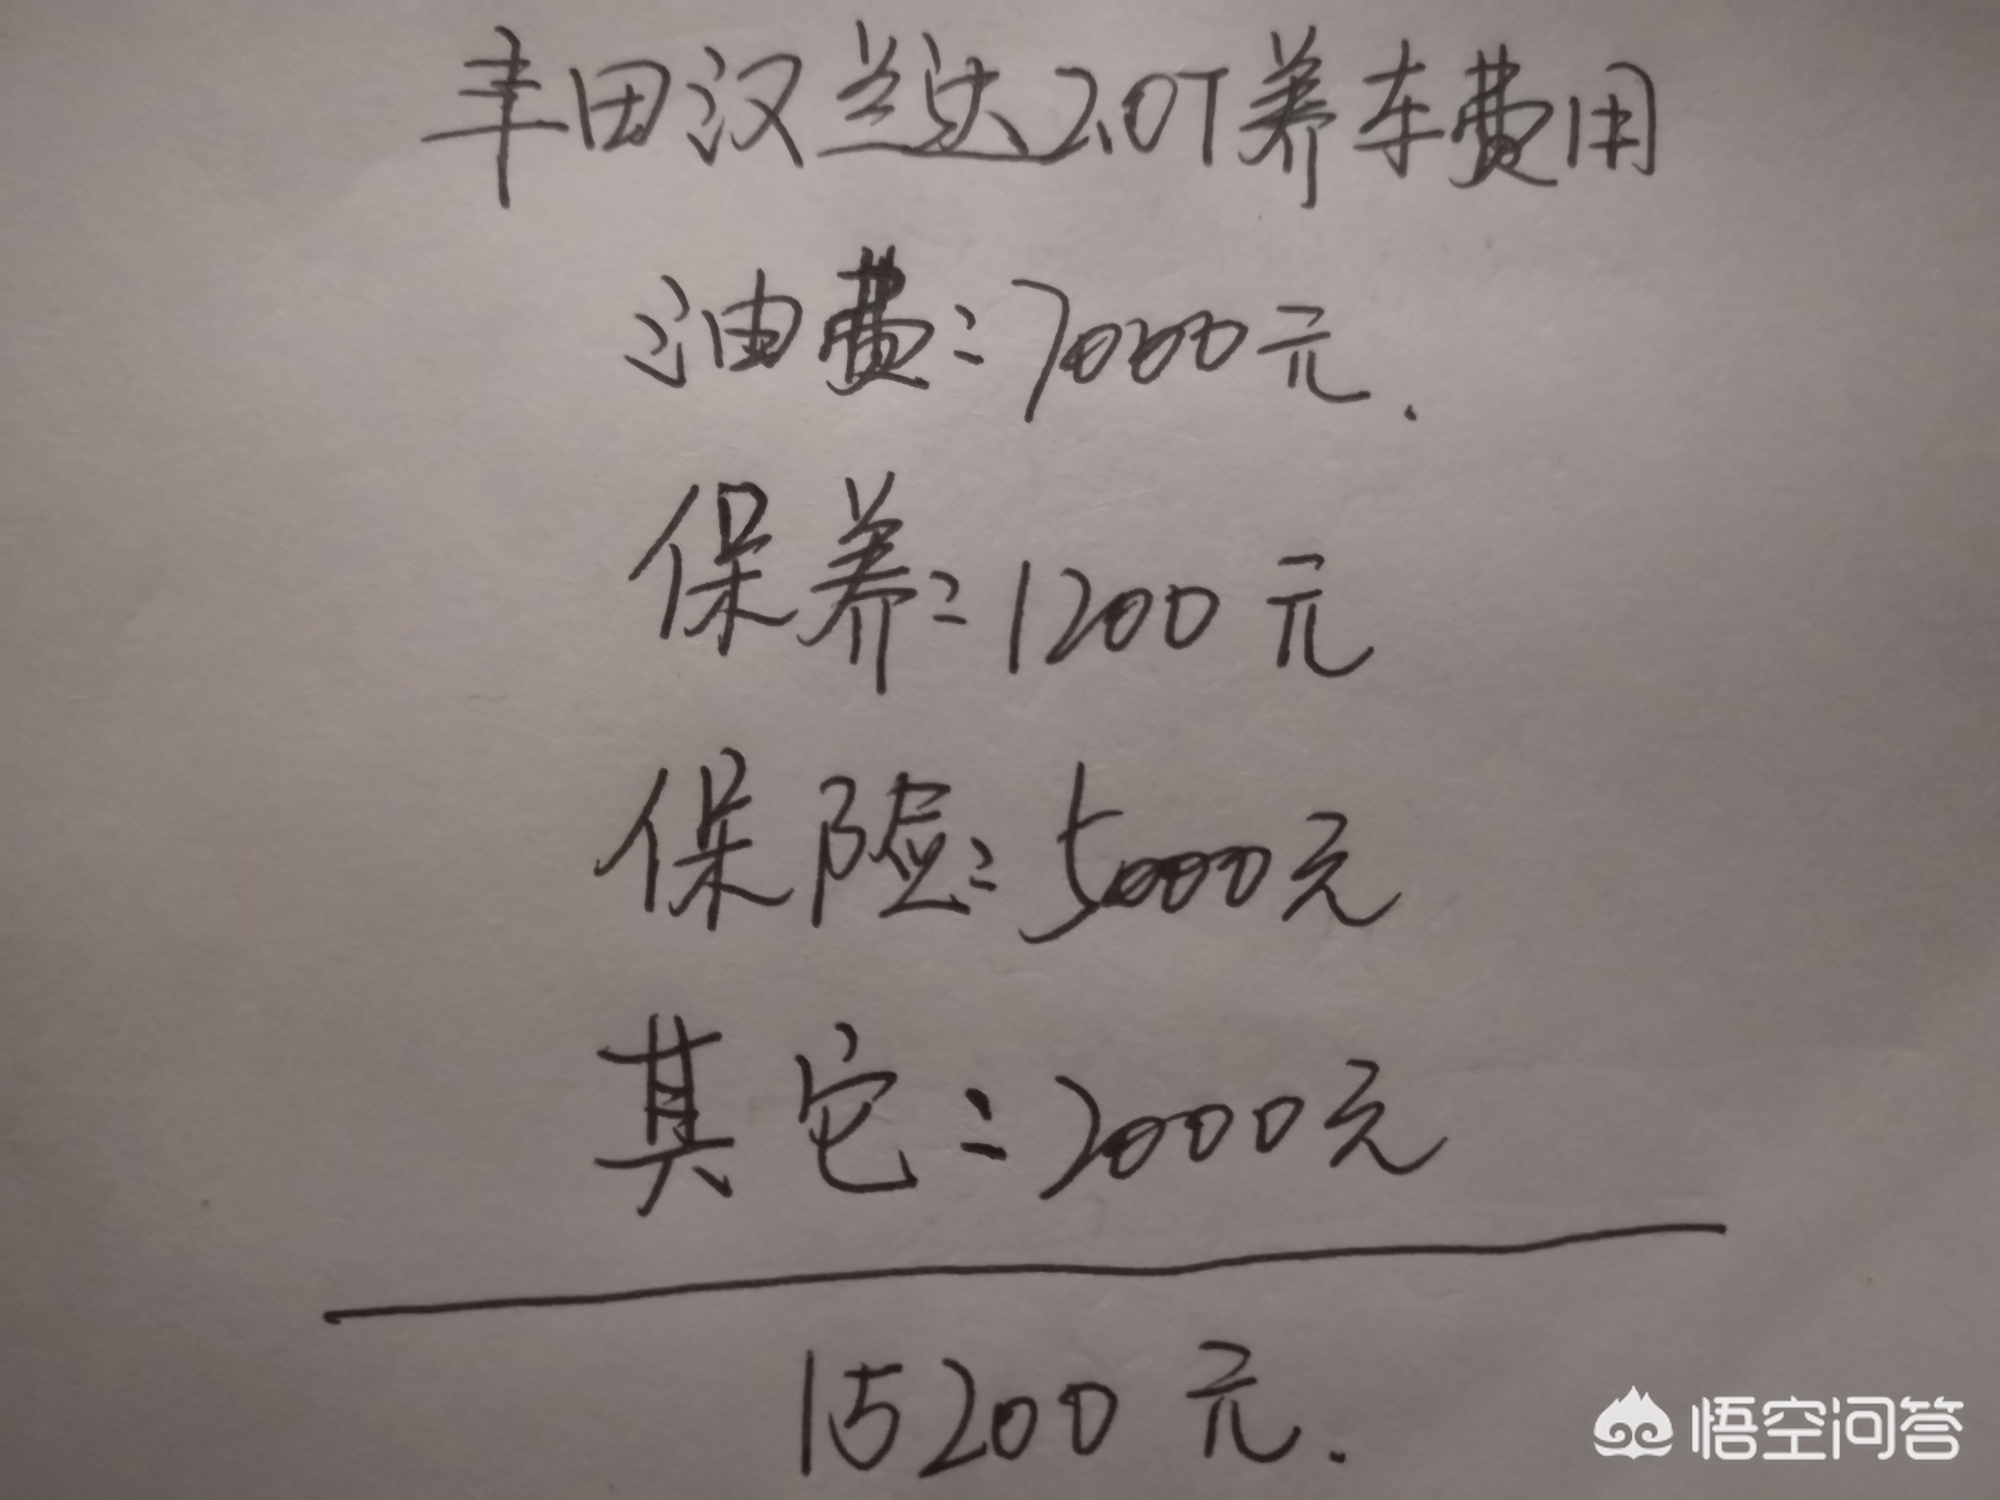 丰田汉兰达2.0T养车费用
油费:7000元.
保养:1200元
保险:5000元
其它:2000元
15200元.
悟空问答